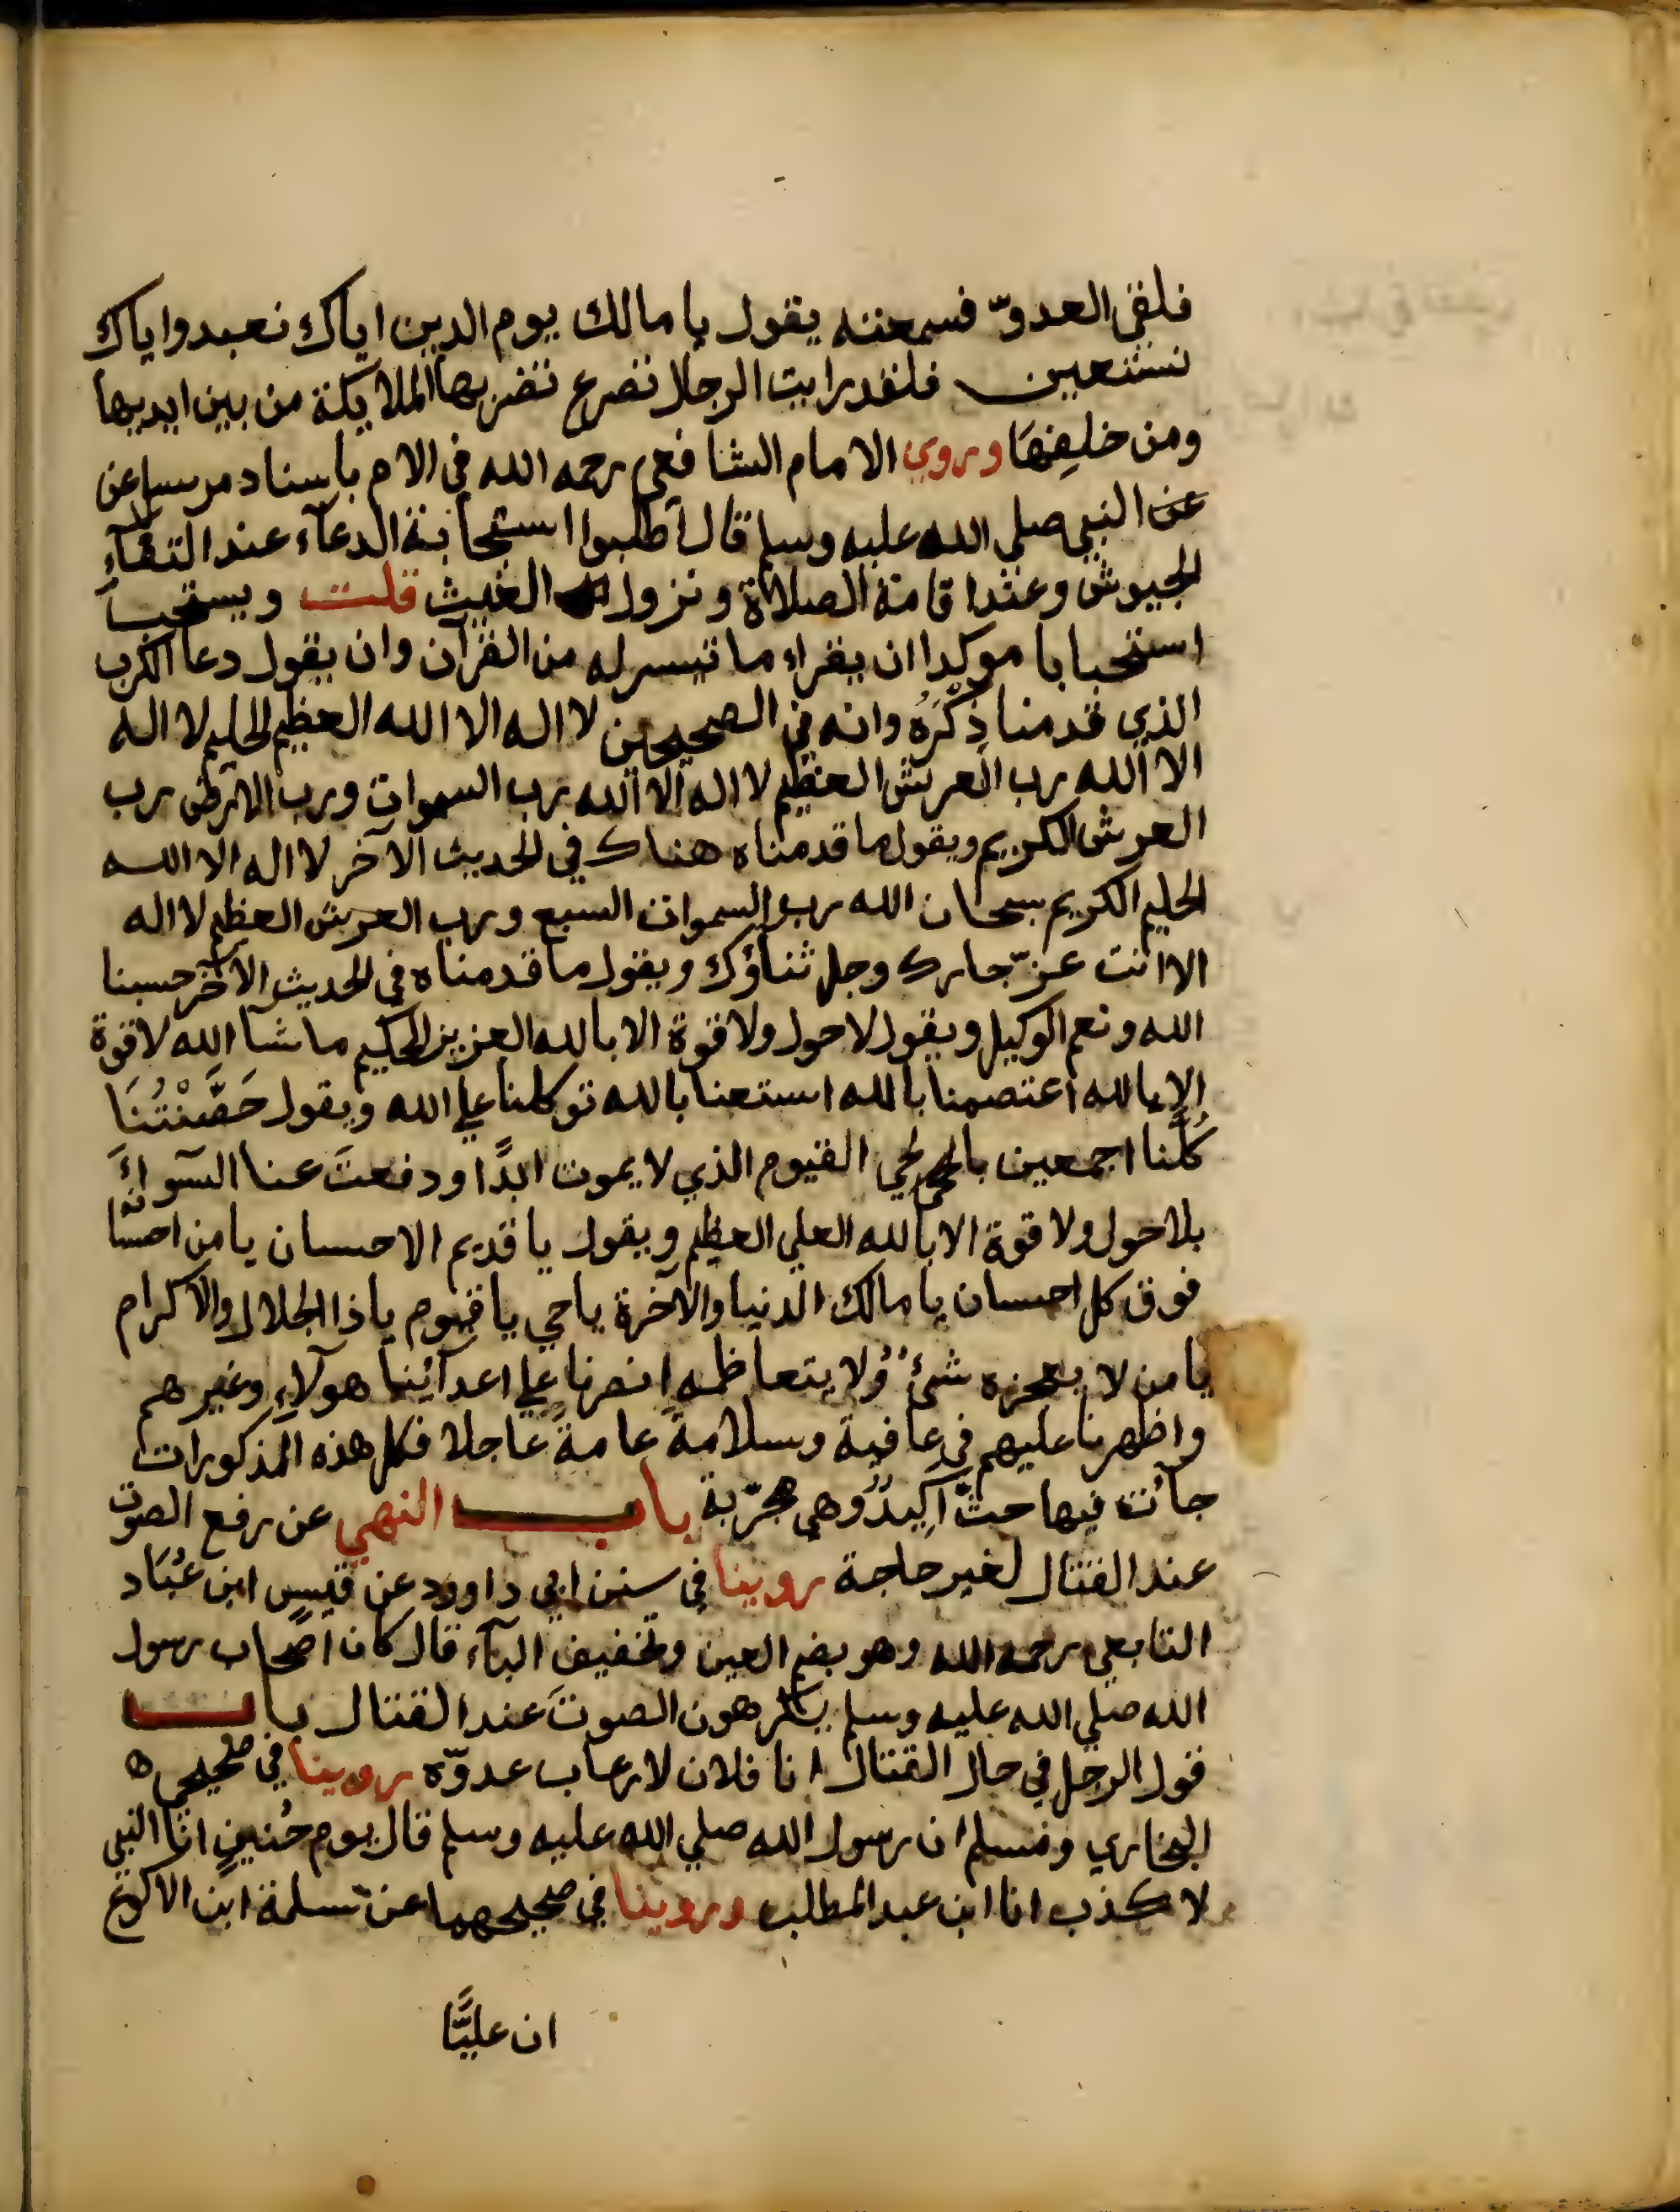 فلقى العدوّ فسمعته يقول يا مالك يوم الدين اياك نعبد واياك
نستعين فلقد رايت الرجال تصرع تضربها الملايكة من بين ايديها
ومن خلفِهَا وروي الامام الشافعي رحمه الله في الام باسناد مرسل عن
عن النبي صلي الله عليه وسلم قال اطلبوا استجابة الدعآء عند التقآءِ
الجيوش وعند اقامة الصلاة ونزول الغيث قلت ويستحب
استحبابا موكدا ان يقراء ما تيسر له من القرآن وان يقول دعا الكرب
الذي قدمنا ذِكْرَهُ وانه في الصحيحين لا اله الا الله العظيم الحليم لا اله
الا الله رب العرش العظيم لا اله الا الله رب السموات ورب الارض رب
العرش الكريم ويقول ما قدمناه هناك في الحديث الآخر لا اله الا الله
الحليم الكريم سبحان الله رب السموات السبع ورب العرش العظيم لا اله
الا انت عزّ جارك وجل ثناؤك ويقول ما قدمناه في الحديث الآخر حسبنا
الله ونعم الوكيل ويقول لا حول ولا قوة الا بالله العزيز الحكيم ما شآ الله لا قوة
الا بالله اعتصمنا بالله استعنا بالله توكلنا علي الله ويقول حَصَّنْتُنَا
كُلَّنا اجمعين بالحي القيوم الذي لا يموت ابدًا ودفعتَ عنا السوآءَ
بلا حول ولا قوة الا بالله العلي العظيم ويقول يا قديم الاحسان يا من احسانه
فوق كل احسان يا مالك الدنيا والآخرة يا حي يا قيوم يا ذا الجلال والاكرام
يا من لا يعجزه شئٌ ولا يتعاظمه انصرنا علي اعدآئنا هولآءِ وغيرهم
واظهرنا عليهم في عافية وسلامة عامة عاجلا فكل هذه المذكورات
جآئت فيها حثٌّ اكِيدٌ وهي مجرّبة باب النهي عن رفع الصوت
عند القتال لغير حاجة روينا في سنن ابي داوود عن قيس ابن عُبَاد
التابعي رحمه الله وهو بضم العين وتخفيف البآء قال كان اصحاب رسول
الله صلي الله عليه وسلم يكرهون الصوتَ عند القتال باب
قول الرجل في حال القتال انا فلان لارعاب عدوّه روينا في صحيحي
البخاري ومسلم ان رسول الله صلي الله عليه وسلم قال يوم حُنينٍ انا النبي
لا كذب انا ابن عبد المطلب وروينا في صحيحهما عن سلمة ابن الاكوع
ان عليًّا